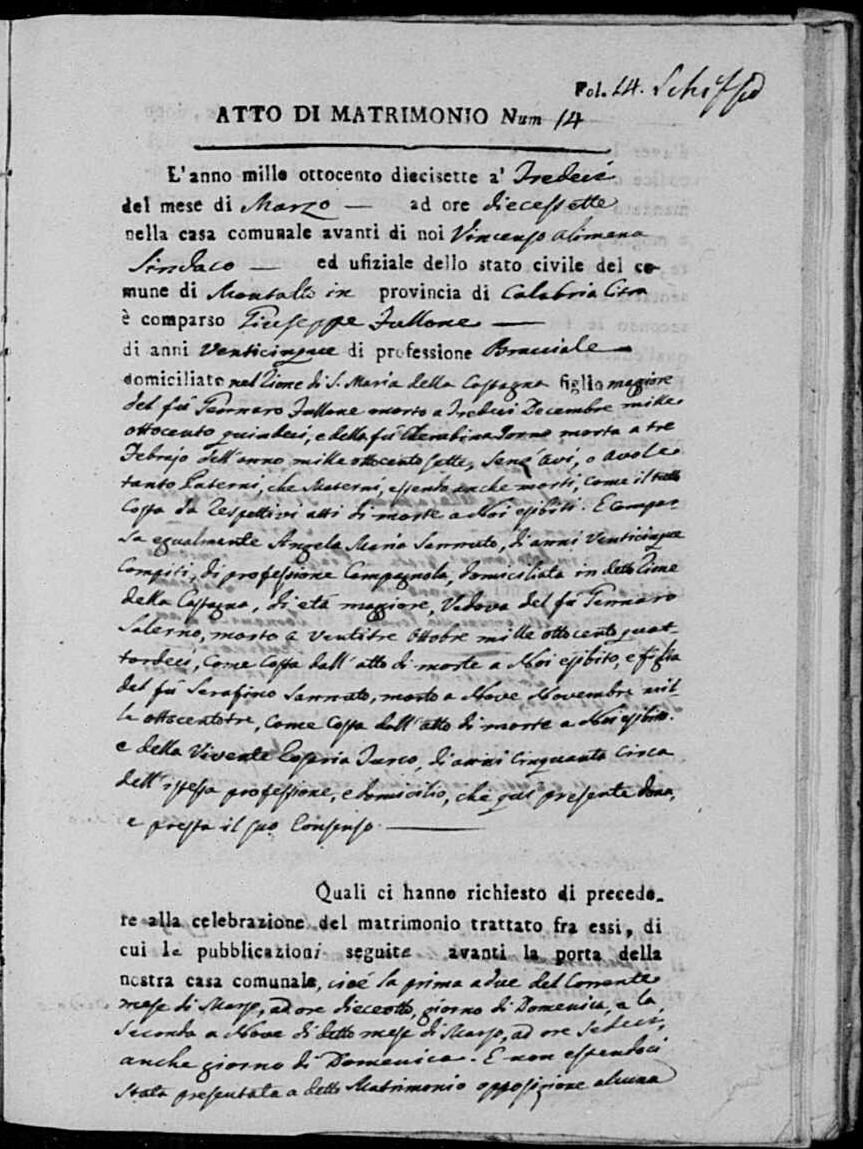 Fol. 14. Schipped
ATTO DI MATRIMONIO Num 14
L'anno mille ottocento diecisette a' Tredeci
del mese di Marzo — ad ore diecessette
nella casa comunale avanti di noi Vincenzo Alimena
Sindaco — ed ufiziale dello stato civile del co-
mune di Montalto in provincia di Calabria Citra
è comparso Giuseppe Fullone —
di anni Venticinque di professione Bracciale —
domiciliato nel Rione di S. Maria della Castagna figlio maggiore
del fù Gennaro Fullone morto a Tredeci Decembre mille
ottocento quindeci, e della fù Cherubina Iorno morta a tre
Febrajo dell'anno mille ottocento sette, senz'avi, o avole
tanto Paterni, che Materni, essendo anche morti, come il tutto
costa da respettivi atti di morte a Noi esibiti. E compar-
sa egualmente Angela Maria Sannuto, di anni Venticinque
compiti, di professione Campagnola, domiciliata in detto Rione
della Castagna, di età maggiore, Vedova del fù Gennaro
Salerno, morto a ventitre ottobre mille ottocento quat-
tordeci, come costa dall'atto di morte a Noi esibito, e figlia
del fù Serafino Sannuto, morto a Nove Novembre mil-
le ottocentotre, come costa dall'atto di morte a Noi esibito.
e della Vivente Rosaria Turco, di anni cinquanta circa
dell'istessa professione, e domicilio, che quì presente dona,
e presta il suo Consenso —
Quali ci hanno richiesto di precede-
re alla celebrazione del matrimonio trattato fra essi, di
cui le pubblicazioni seguite avanti la porta della
nostra casa comunale, cioé la prima a due del Corrente
mese di Marzo, ad ore dieceotto, giorno di Domenica, e la
seconda a Nove di detto mese di Marzo, ad ore sedeci,
anche giorno di Domenica. E non essendoci
stata presentata a detto Matrimonio opposizione alcuna